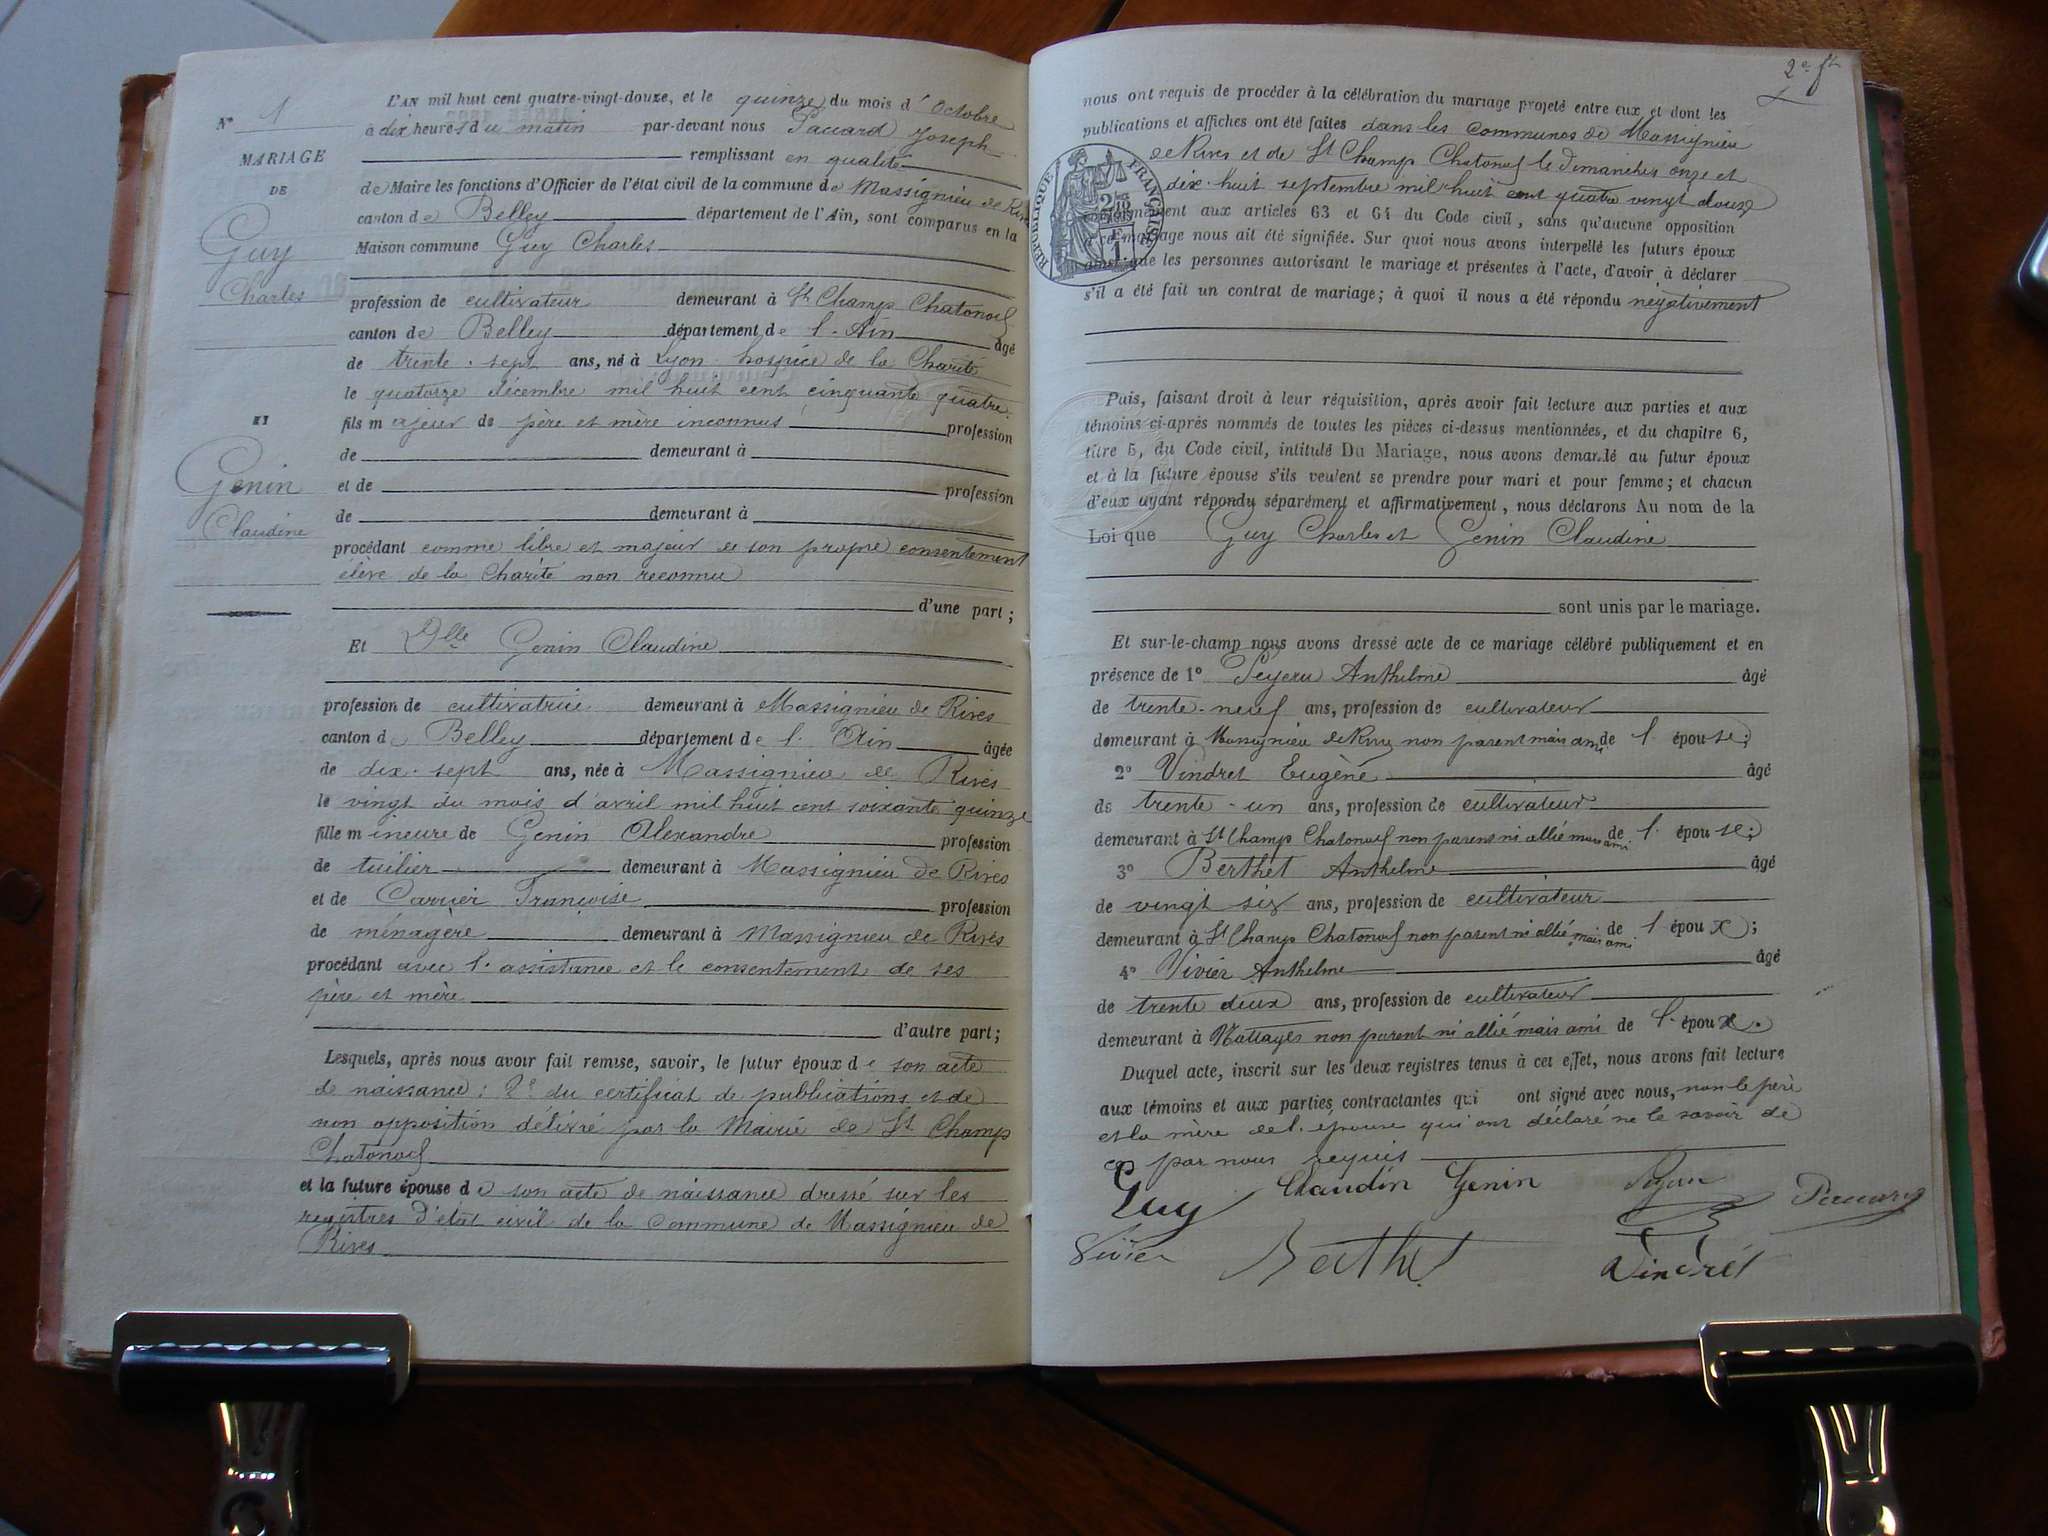 L'AN mil huit cent quatre-vingt-douze, et le quinze du mois d'Octobre
à dix heures du matin par-devant nous Paccard Joseph
remplissant en qualité
de Maire les fonctions d'Officier de l'état civil de la commune de Massignieu de Rives
canton de Belley département de l'Ain, sont comparus en la
Maison commune Guy Charles
profession de cultivateur demeurant à St Champ Chatonod
canton de Belley département de l'Ain âgé
de trente-sept ans, né à Lyon hospice de la Charité
le quatorze décembre mil huit cent cinquante quatre
fils majeur de père et mère inconnus profession
de demeurant à
et de profession
de demeurant à
procédant comme libre et majeur de son propre consentement
élève de la Charité non reconnu
d'une part;
Et Dlle Genin Claudine
profession de cultivatrice demeurant à Massignieu de Rives
canton de Belley département de l'Ain âgée
de dix-sept ans, née à Massignieu de Rives
le vingt du mois d'avril mil huit cent soixante quinze
fille mineure de Genin Alexandre profession
de tuilier demeurant à Massignieu de Rives
et de Carrier Françoise profession
de ménagère demeurant à Massignieu de Rives
procédant avec l'assistance et le consentement de ses
père et mère
d'autre part;
Lesquels, après nous avoir fait remise, savoir, le futur époux de son acte
de naissance: 2° du certificat de publications et de
non opposition délivré par la Mairie de St Champ
Chatonod
et la future épouse de son acte de naissance dressé sur les
registres d'état civil de la commune de Massignieu de
Rives
N° 1
MARIAGE
DE
Guy
Charles
ET
Genin
Claudine
2e ft
nous ont requis de procéder à la célébration du mariage projeté entre eux et dont les
publications et affiches ont été faites dans les communes de Massignieu
de Rives et de St Champ Chatonod le dimanches onze et
dix-huit septembre mil huit cent quatre vingt douze
conformément aux articles 63 et 64 du Code civil, sans qu'aucune opposition
à ce mariage nous ait été signifiée. Sur quoi nous avons interpellé les futurs époux
ainsi que les personnes autorisant le mariage et présentes à l'acte, d'avoir à déclarer
s'il a été fait un contrat de mariage; à quoi il nous a été répondu négativement
RÉPUBLIQUE FRANÇAISE
Puis, faisant droit à leur réquisition, après avoir fait lecture aux parties et aux
témoins ci-après nommés de toutes les pièces ci-dessus mentionnées, et du chapitre 6,
titre 5, du Code civil, intitulé Du Mariage, nous avons demandé au futur époux
et à la future épouse s'ils veulent se prendre pour mari et pour femme; et chacun
d'eux ayant répondu séparément et affirmativement, nous déclarons Au nom de la
Loi que Guy Charles et Genin Claudine
sont unis par le mariage.
Et sur-le-champ nous avons dressé acte de ce mariage célébré publiquement et en
présence de 1° Anthelme âgé
de trente-neuf ans, profession de cultivateur
demeurant à Massignieu de Rives non parent mais ami de l'épouse;
2° Vindret Eugène âgé
de trente-un ans, profession de cultivateur
demeurant à St Champ Chatonod non parent ni allié mais ami de l'épouse;
3° Berthet Anthelme âgé
de vingt six ans, profession de cultivateur
demeurant à St Champ Chatonod non parent ni allié mais ami de l'époux;
4° Vivier Anthelme âgé
de trente deux ans, profession de cultivateur
demeurant à Nattages non parent ni allié mais ami de l'époux.
Duquel acte, inscrit sur les deux registres tenus à cet effet, nous avons fait lecture
aux témoins et aux parties contractantes qui ont signé avec nous, non le père
et la mère de l'épouse qui ont déclaré ne le savoir de
ce par nous requis
Guy Claudin Genin Paccard
Vivier Berthet Vindret